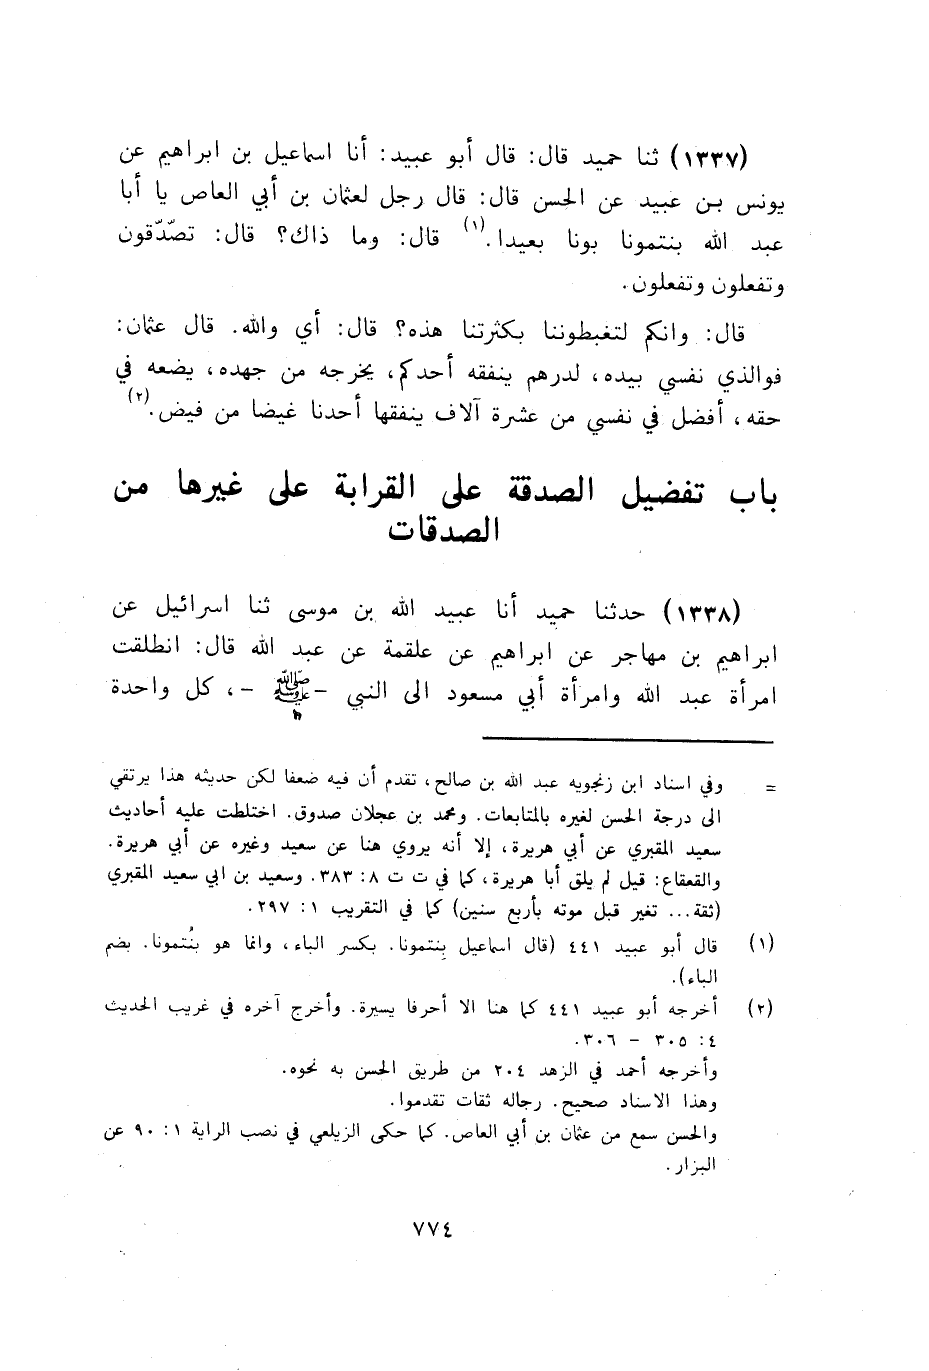 (١٣٣٧) ثنا حميد قال: قال أبو عبيد: أنا اسماعيل بن ابراهيم عن
يونس بن عبيد عن الحسن قال: قال رجل لعثمان بن أبي العاص يا أبا
عبد الله بنتمونا بونا بعيدا.(١) قال: وما ذاك؟ قال: تصّدّقون
وتفعلون وتفعلون.
قال: وانكم لتغبطوننا بكثرتنا هذه؟ قال: أي والله. قال عثمان:
فوالذي نفسي بيده، لدرهم ينفقه أحدكم، يخرجه من جهده، يضعه في
حقه، أفضل في نفسي من عشرة آلاف ينفقها أحدنا غيضا من فيض.(٢)
باب تفضيل الصدقة على القرابة على غيرها من
الصدقات
(١٣٣٨) حدثنا حميد أنا عبيد الله بن موسى ثنا اسرائيل عن
ابراهيم بن مهاجر عن ابراهيم عن علقمة عن عبد الله قال: انطلقت
امرأة عبد الله وامرأة أبي مسعود الى النبي - ﷺ -، كل واحدة
= وفي اسناد ابن زنجويه عبد الله بن صالح، تقدم أن فيه ضعفا لكن حديثه هذا يرتقي
الى درجة الحسن لغيره بالمتابعات. ومحمد بن عجلان صدوق. اختلطت عليه أحاديث
سعيد المقبري عن أبي هريرة، إلا أنه يروي هنا عن سعيد وغيره عن أبي هريرة.
والقعقاع: قيل لم يلق أبا هريرة، كما في ت ت ٨: ٣٨٣. وسعيد بن ابي سعيد المقبري
(ثقة... تغير قبل موته بأربع سنين) كما في التقريب ١: ٢٩٧.
(١) قال أبو عبيد ٤٤١ (قال اسماعيل بِنتمونا. بكسر الباء، وانما هو بنُتمونا. بضم
الباء).
(٢) أخرجه أبو عبيد ٤٤١ كما هنا الا أحرفا يسيرة. وأخرج آخره في غريب الحديث
٤: ٣٠٥ - ٣٠٦.
وأخرجه أحمد في الزهد ٢٠٤ من طريق الحسن به نحوه.
وهذا الاسناد صحيح. رجاله ثقات تقدموا.
والحسن سمع من عثمان بن أبي العاص. كما حكى الزيلعي في نصب الراية ١: ٩٠ عن
البزار.
٧٧٤